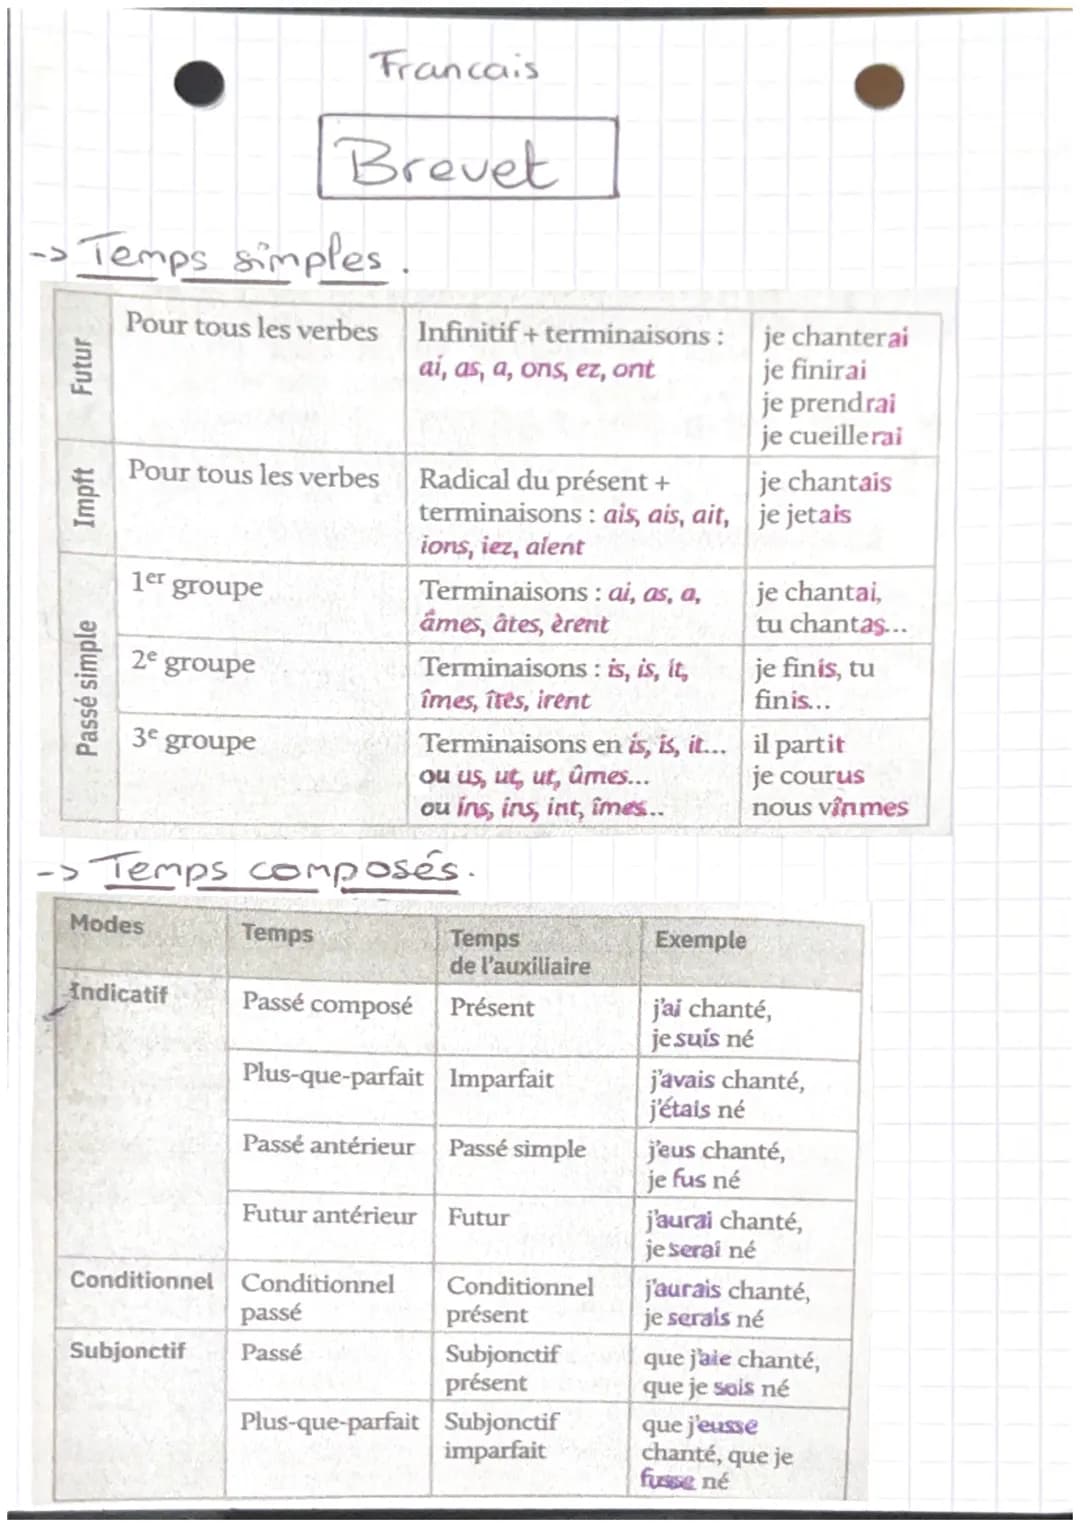 Francais
Brevet
-> Temps simples.
Futur
Pour tous les verbes
Infinitif + terminaisons :
ai, as, a, ons, ez, ont
je chanterai
je finirai
je prendrai
je cueillerai
Impft
Pour tous les verbes
Radical du présent +
terminaisons : ais, ais, ait,
ions, iez, aient
je chantais
je jetais
Passé simple
1er groupe
Terminaisons : ai, as, a,
âmes, âtes, èrent
je chantai,
tu chantas...
2e groupe
Terminaisons : is, is, it,
îmes, îtes, irent
je finis, tu
finis...
3e groupe
Terminaisons en is, is, it...
ou us, ut, ut, ûmes...
ou ins, ins, int, îmes...
il partit
je courus
nous vînmes
-> Temps composés.
Modes
Temps
Temps
de l'auxiliaire
Exemple
Indicatif
Passé composé
Présent
j'ai chanté,
je suis né
Plus-que-parfait
Imparfait
j'avais chanté,
j'étais né
Passé antérieur
Passé simple
j'eus chanté,
je fus né
Futur antérieur
Futur
j'aurai chanté,
je serai né
Conditionnel
Conditionnel
passé
Conditionnel
présent
j'aurais chanté,
je serais né
Subjonctif
Passé
Subjonctif
présent
que j'aie chanté,
que je sois né
Plus-que-parfait
Subjonctif
imparfait
que j'eusse
chanté, que je
fusse né